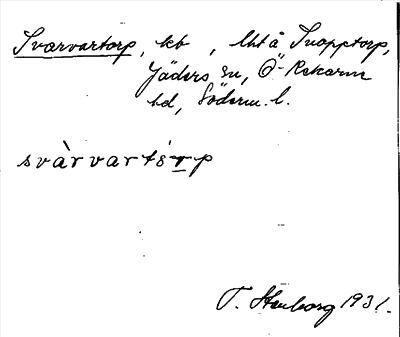 Svarvartorp, kb, lht å Snopptorp,
Jäders sn, Ö-Rekarne
hd, Söderm. l.
svàrvartór̲p
T. Stenborg 1931.